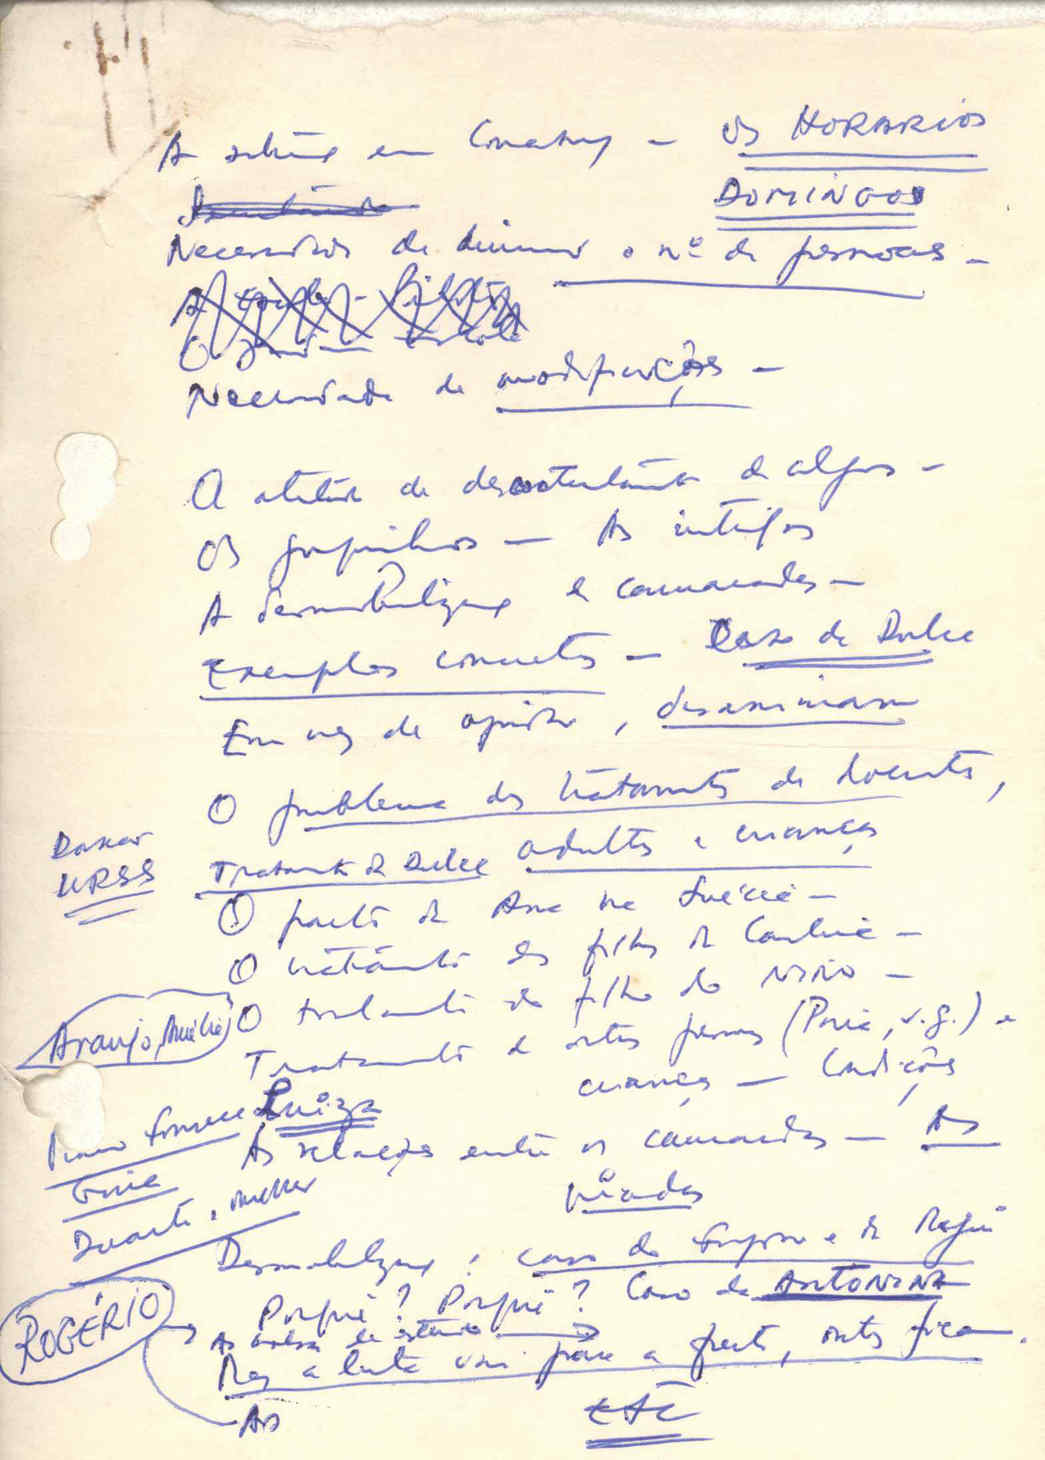 A          em Conakry – os HORARIOS
DOMINGOS
Necessidade de diminuir o nº de pessoas –
Necessidade de modificações –
A atitude de descontentamento de alguns –
Os grupinhos – As intrigas
A desmobilização de camaradas –
Exemplos concretos – Caso de Dulce
Em vez de ajudar, desanimam
O problema dos tratamentos de doentes,
Dakar
URSS
Tratamento de Dulce adultos e crianças
O parto de Ana na Suécia –
O tratamento dos filhos de
O tratamento do filho do NINO –
Araujo, Amélia
Tratamento de outras pessoas (     , v.g.) e
crianças – Condições
Luiza
As relações entre os camaradas – As
piadas
Duarte e mulher
Desmobilização: caso de          e de
Porquê? Porquê? Caso de ANTONINA
ROGÉRIO
As bolsas de estudo
Mas a luta vai para a frente, outros ficam.
As
ETC